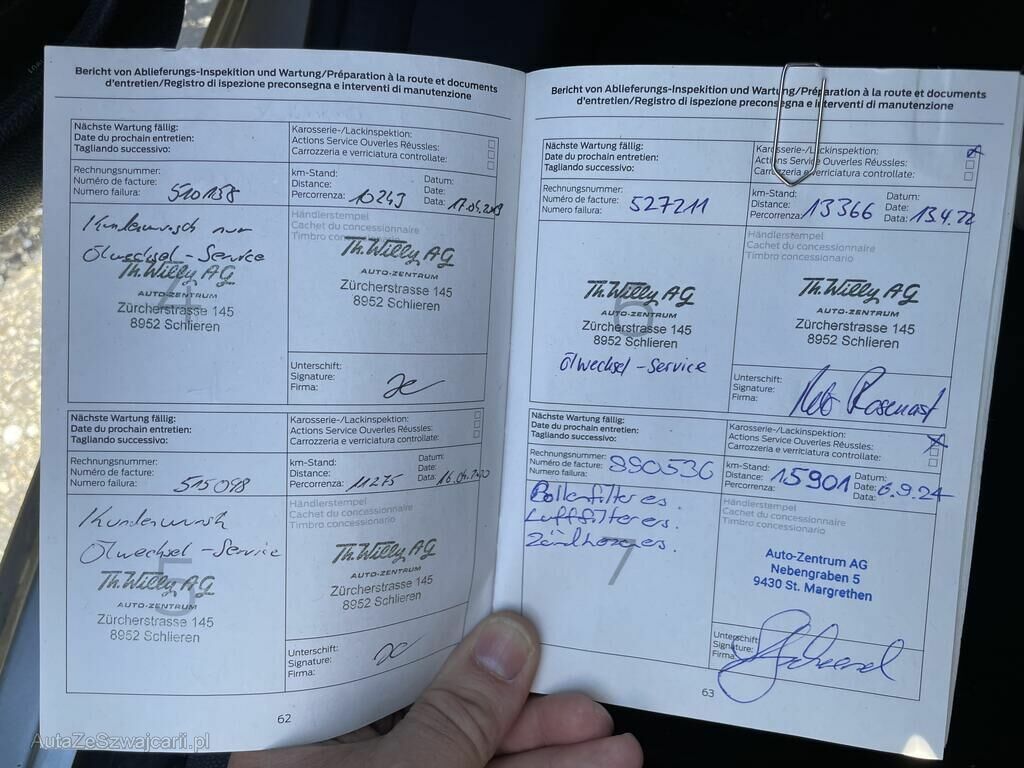 Bericht von Ablieferungs-Inspekition und Wartung/Préparation à la route et documents
d'entretien/Registro di ispezione preconsegna e interventi di manutenzione
Nächste Wartung fällig:
Date du prochain entretien:
Tagliando successivo:
Karosserie-/Lackinspektion:
Actions Service Ouverles Réussles:
Carrozzeria e verriciatura controllate:
Rechnungsnummer:
Numéro de facture:
Numero failura:
510138
km-Stand:
Distance:
Percorrenza: 10243
Datum:
Date:
Data: 17.04.2019
Kundenwunsch nur
Ölwechsel-Service
Th. Willy AG
AUTO-ZENTRUM
Zürcherstrasse 145
8952 Schlieren
4
Händlerstempel
Cachet du concessionnaire
Timbro concessionario
Th. Willy AG
AUTO-ZENTRUM
Zürcherstrasse 145
8952 Schlieren
Unterschift:
Signature:
Firma:
Nächste Wartung fällig:
Date du prochain entretien:
Tagliando successivo:
Karosserie-/Lackinspektion:
Actions Service Ouverles Réussles:
Carrozzeria e verriciatura controllate:
Rechnungsnummer:
Numéro de facture:
Numero failura:
515098
km-Stand:
Distance:
Percorrenza: 11275
Datum:
Date:
Data: 16.04.2020
Kundenwunsch
Ölwechsel-Service
Th. Willy AG
AUTO-ZENTRUM
Zürcherstrasse 145
8952 Schlieren
5
Händlerstempel
Cachet du concessionnaire
Timbro concessionario
Th. Willy AG
AUTO-ZENTRUM
Zürcherstrasse 145
8952 Schlieren
Unterschift:
Signature:
Firma:
62
Bericht von Ablieferungs-Inspekition und Wartung/Préparation à la route et documents
d'entretien/Registro di ispezione preconsegna e interventi di manutenzione
Nächste Wartung fällig:
Date du prochain entretien:
Tagliando successivo:
Karosserie-/Lackinspektion:
Actions Service Ouverles Réussles:
Carrozzeria e verriciatura controllate:
Rechnungsnummer:
Numéro de facture:
Numero failura:
527211
km-Stand:
Distance:
Percorrenza: 13366
Datum:
Date:
Data: 13.4.22
6
Th. Willy AG
AUTO-ZENTRUM
Zürcherstrasse 145
8952 Schlieren
Ölwechsel-Service
Händlerstempel
Cachet du concessionnaire
Timbro concessionario
Th. Willy AG
AUTO-ZENTRUM
Zürcherstrasse 145
8952 Schlieren
Unterschift:
Signature:
Firma:
Nächste Wartung fällig:
Date du prochain entretien:
Tagliando successivo:
Karosserie-/Lackinspektion:
Actions Service Ouverles Réussles:
Carrozzeria e verriciatura controllate:
Rechnungsnummer:
Numéro de facture:
Numero failura:
890536
km-Stand:
Distance:
Percorrenza: 15901
Datum:
Date:
Data: 6.9.24
Pollenfilter es.
Luftfilter es.
7
Händlerstempel
Cachet du concessionnaire
Timbro concessionario
Auto-Zentrum AG
Nebengraben 5
9430 St. Margrethen
Unterschift:
Signature:
Firma:
63
AutaZeSzwajcarii.pl